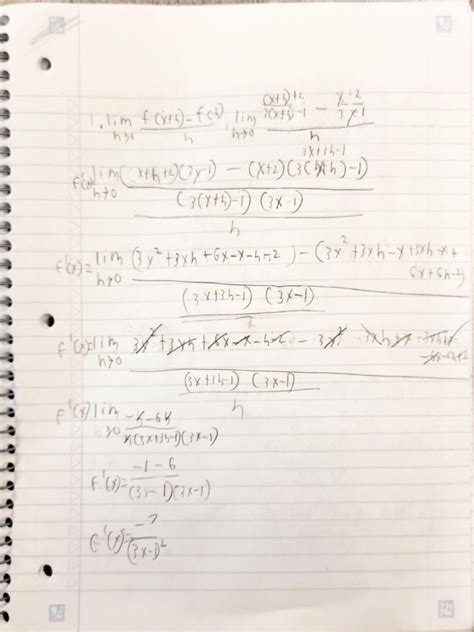 1. lim h→0 f(x+h)-f(x) / h , lim h→0 ((x+h)+2 / 3(x+h)-1 - x+2 / 3x-1) / h
3x+3h-1
f'(x) lim h→0 (x+h+2)(3x-1) - (x+2)(3(x+h)-1)
(3(x+h)-1) (3x-1)
h
f'(x)= lim h→0 (3x²+3xh+6x-x-h-2) - (3x²+3xh-x+
6x+6h-
(3x+3h-1) (3x-1)
h
f'(x)= lim h→0 3x²+3xh+6x-x-h-2 - 3x² - 3xh
(3x+3h-1) (3x-1)
h
f'(x) lim h→0 -h-6h / h(3x+3h-1)(3x-1)
f'(x)= -1-6 / (3x-1)(3x-1)
f'(x)= -7 / (3x-1)²